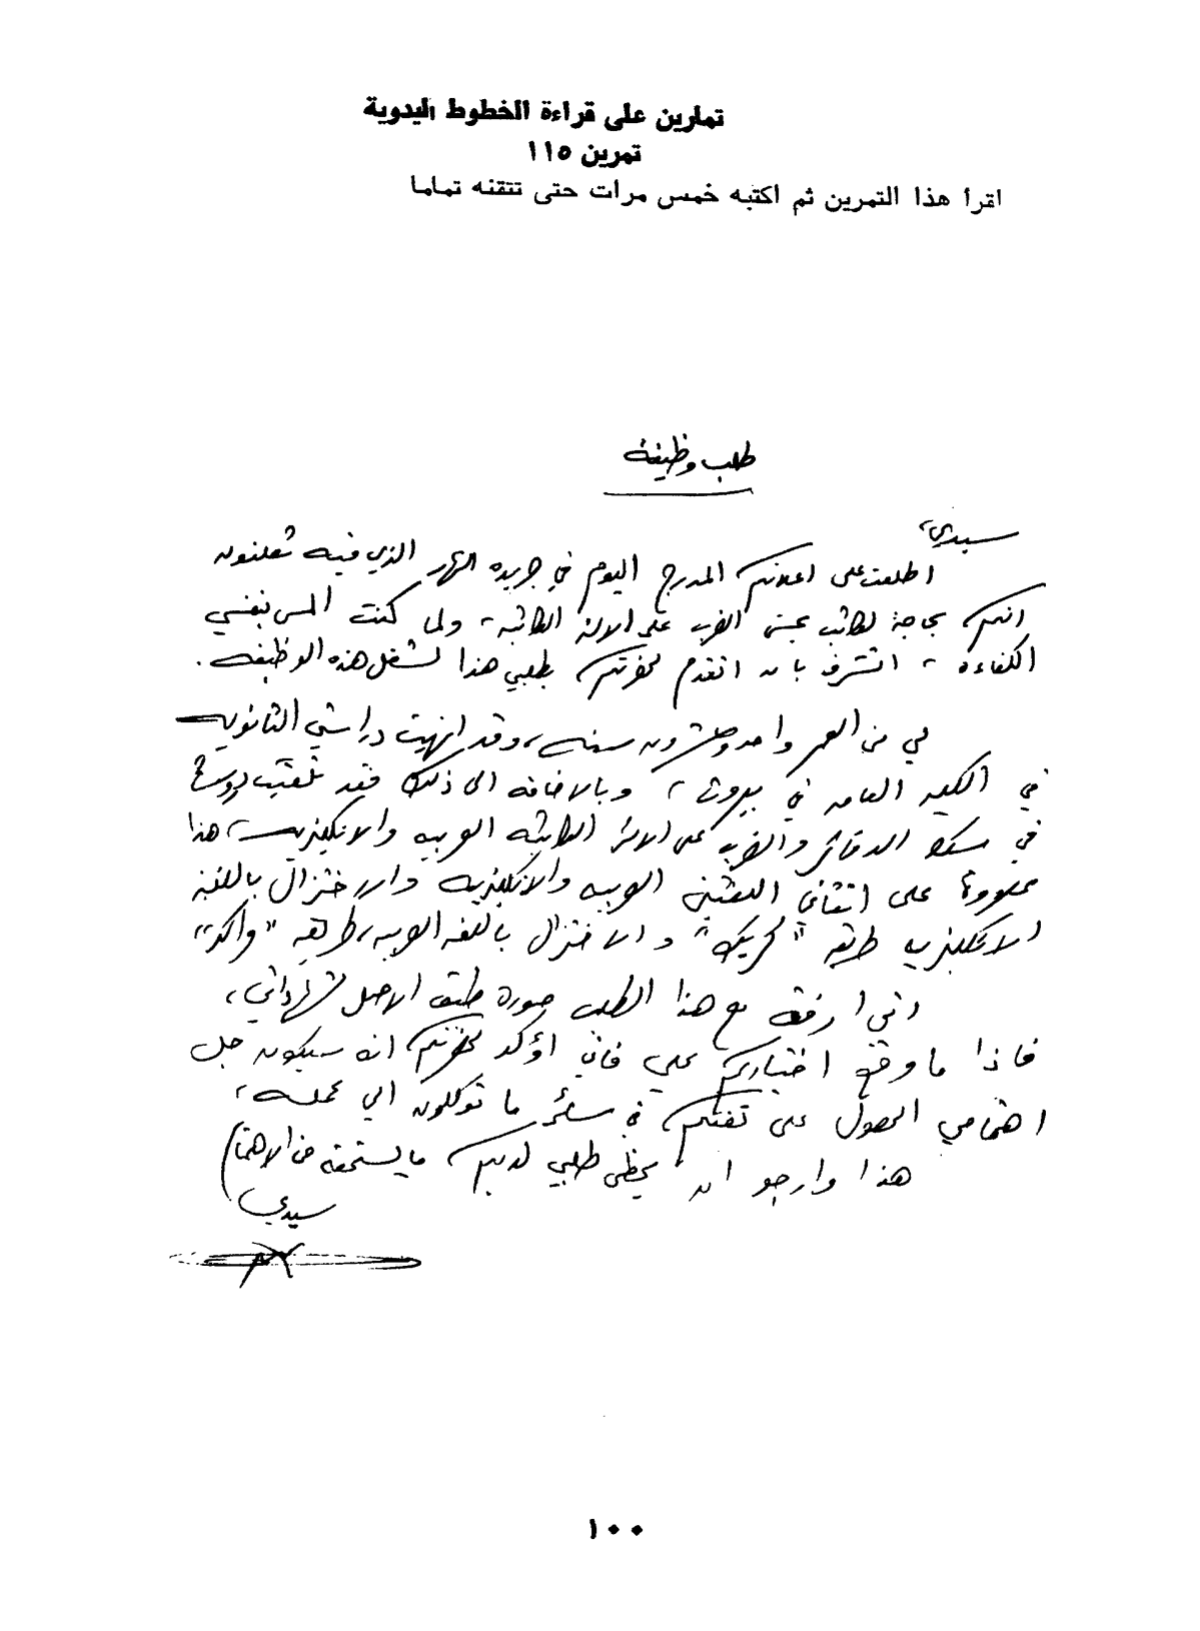 تمارين على قراءة الخطوط اليدوية
تمرين ١١٥
اقرأ هذا التمرين ثم اكتبه خمس مرات حتى تتقنه تماما
طلب وظيفة
سيدي،
اطلعت على اعلانكم المدرج اليوم في جريده النهار الذي فيه تعلنون
انكم بحاجة لكاتب يحسن الضرب على الالة الكاتبة، ولما كنت المس بنفسي
الكفاءه، اتشرف بان اتقدم لحضرتكم بطلبي هذا لشغل هذه الوظيفه.
لي من العمر واحد وعشرون سنه، وقد انهيت دراستي الثانويه
في الكليه العامه في بيروت، وبالاضافه الى ذلك فقد تلقيت دروسا
في مسك الدفاتر والضرب على الالة الكاتبه العربيه والانكليزيه، هذا
علاوة على اتقاني اللغتين العربيه والانكليزيه والاختزال باللغة
الانكليزيه طريقه "كريك" والاختزال باللغه العربيه، طريقه
انني ارفق مع هذا الطلب صورة طبق الاصل لشهاداتي،
فاذا ما وقع اختياركم علي فاني اؤكد لحضرتكم انه سيكون جل
اهتمامي الحصول على ثقتكم في سائر ما توكلون الي عمله،
هذا وارجو ان يحظى طلبي لديكم ما يستحقه من الاهتمام
سيدي
١٠٠